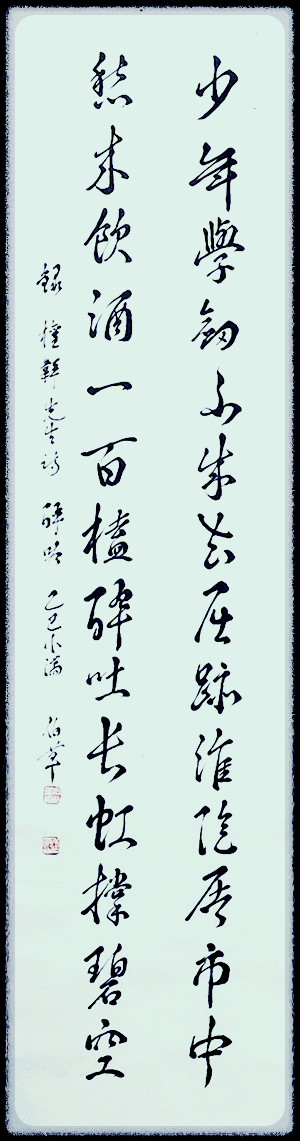 少年學劍不成屈跡淮陰市中
愁來飲酒一百榼醉吐長虹撐碧空
錄軒先生詩 醉吟 乙巳小滿